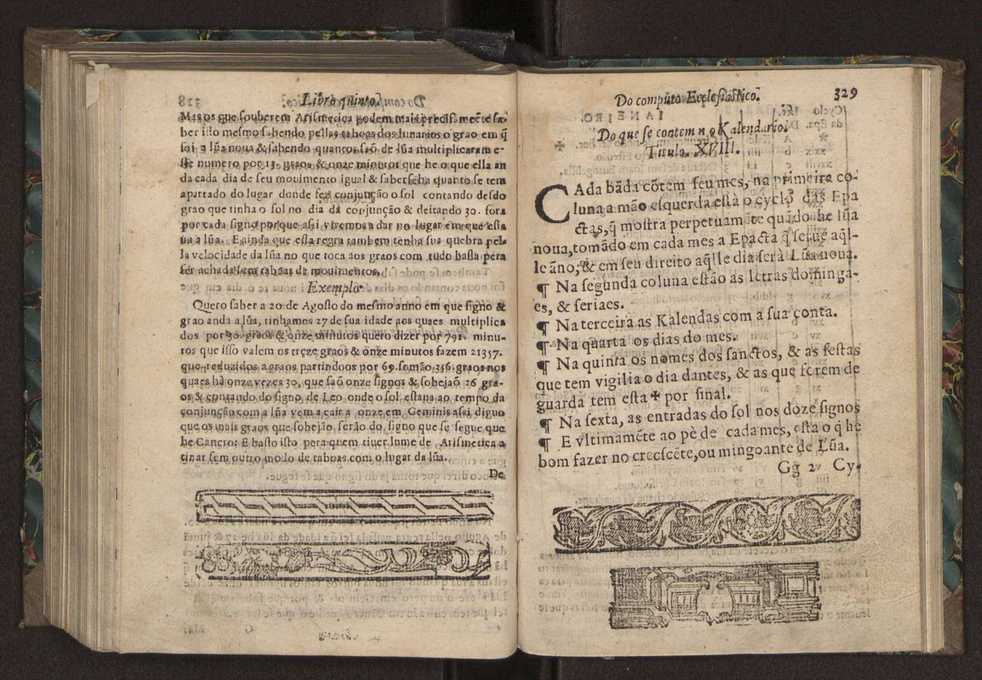 Libro quinto.
Mas os que souberem Arismetica podem mais precissamẽte sa-
ber isto mesmo sabendo pellas taboas dos lunarios o grao em q̃
foi a lũa noua & sabendo quantos saõ de lũa multiplicaram es-
se numero por 13. graos & onze minutos que he o que ella an
da cada dia de seu mouimento igual & saberseha quanto se tem
apartado do lugar donde fez conjunção o sol contando desdo
grao que tinha o sol no dia da conjunção & deitando 30. fora
por cada signo porque assi viremos a dar no lugar em que esta
ua a lũa. E ainda que esta regra tambem tenha sua quebra pel-
la velocidade da lũa no que toca aos graos com tudo basta pera
ser achada sem taboas de mouimentos.
Exemplo
Quero saber a 20 de Agosto do mesmo anno em que signo &
grao anda a lũa, tinhamos 27 de sua idade aos quaes multiplica
dos por 30. graos & onze minutos quero dizer por 791. minu-
tos que isso valem os treze graos & onze minutos fazem 21357.
que reduzidos a graos partindoos por 60 somão 356. graos nos
quaes há onze vezes 30, que saõ onze signos & sobejaõ 26 gra-
os & contando do signo de Leo onde o sol estaua ao tempo da
conjunção com a lũa vem a cair a onze em Geminis assi digno
que os mais graos que sobejão serão do signo que se segue que
he Cancro: E basto isto pera quem tiuer lume de Arismetica a
tinar sem outro modo de taboas com o lugar da lũa.
De
Do compùto Ecclesiastico. 329
Do que se contem no Kalendario.
Titulo. XVIII.
CAda bãda cõtem seu mes, na primeira co-
luna a mão esquerda està o cyclo das Epa
ctas, q̃ mostra perpetuamẽte quãdo he lũa
noua, tomãdo em cada mes a Epacta q̃ serue aq̃l-
le ãno, & em seu direito aq̃lle dia serà Lũa noua.
¶ Na segunda coluna estão as letras dominga-
es, & feriaes.
¶ Na terceira as Kalendas com a sua conta.
¶ Na quarta os dias do mes.
¶ Na quinta os nomes dos sanctos, & as festas
que tem vigilia o dia dantes, & as que forem de
guarda tem esta ✠ por sinal.
¶ Na sexta, as entradas do sol nos doze signos
¶ E vltimamẽte ao pè de cada mes, està o q̃ he
bom fazer no crecscẽte, ou mingoante de Lũa.
Gg 2 Cy-